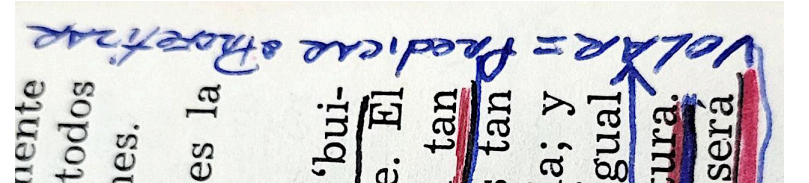 VOLAR = Predicar o Profetizar
mente
todos
nes.
es la
'bui-
e. El
tan
s tan
a; y
gual
tura.
será